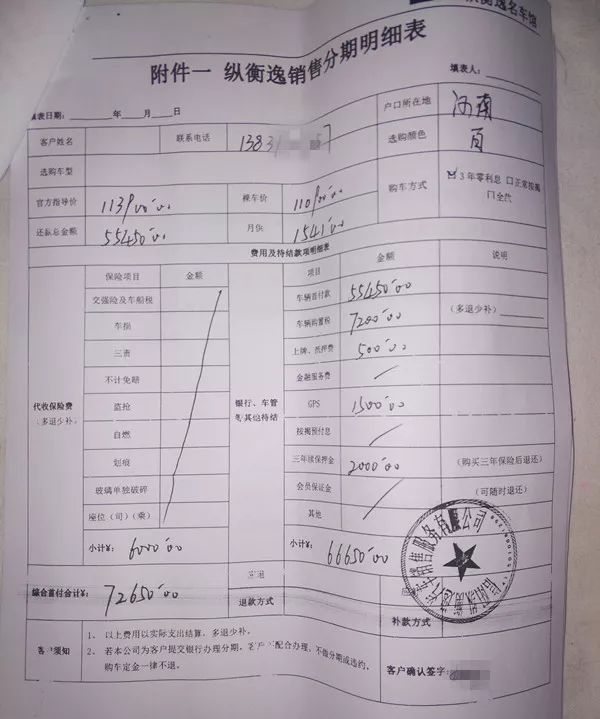 衡逸名车馆
附件一 纵衡逸销售分期明细表
填表日期: 年 月 日
填表人:
客户姓名 联系电话 1383 57 户口所在地 河南
选购车型 选购颜色 白
官方指导价 113900.00 裸车价 110900.00 购车方式 ☑3年零利息 □正常按揭 □全款
还款总金额 55450.00 月供 1541.00
费用及待结款项明细表
保险项目 金额 项目 金额 说明
交强险及车船税 车辆首付款 55450.00
车损 车辆购置税 7200.00 (多退少补)
三责 上牌、抵押费 500.00
不计免赔 金融服务费 /
代收保险费 (多退少补) 盗抢 银行、车管等其他待结 GPS 1500.00
自燃 按揭预付息 /
划痕 三年续保押金 2000.00 (购买三年保险后退还)
玻璃单独破碎 会员保证金 / (可随时退还)
座位(司)(乘) 其他
小计¥: 6000.00 小计¥: 66650.00
综合首付合计¥: 72650.00 退款方式 补款方式
客户须知
1、 以上费用以实际支出结算,多退少补。
2、 若本公司为客户提交银行办理分期,客户不配合办理,不做分期或违约,
购车定金一律不退。
客户确认签字: